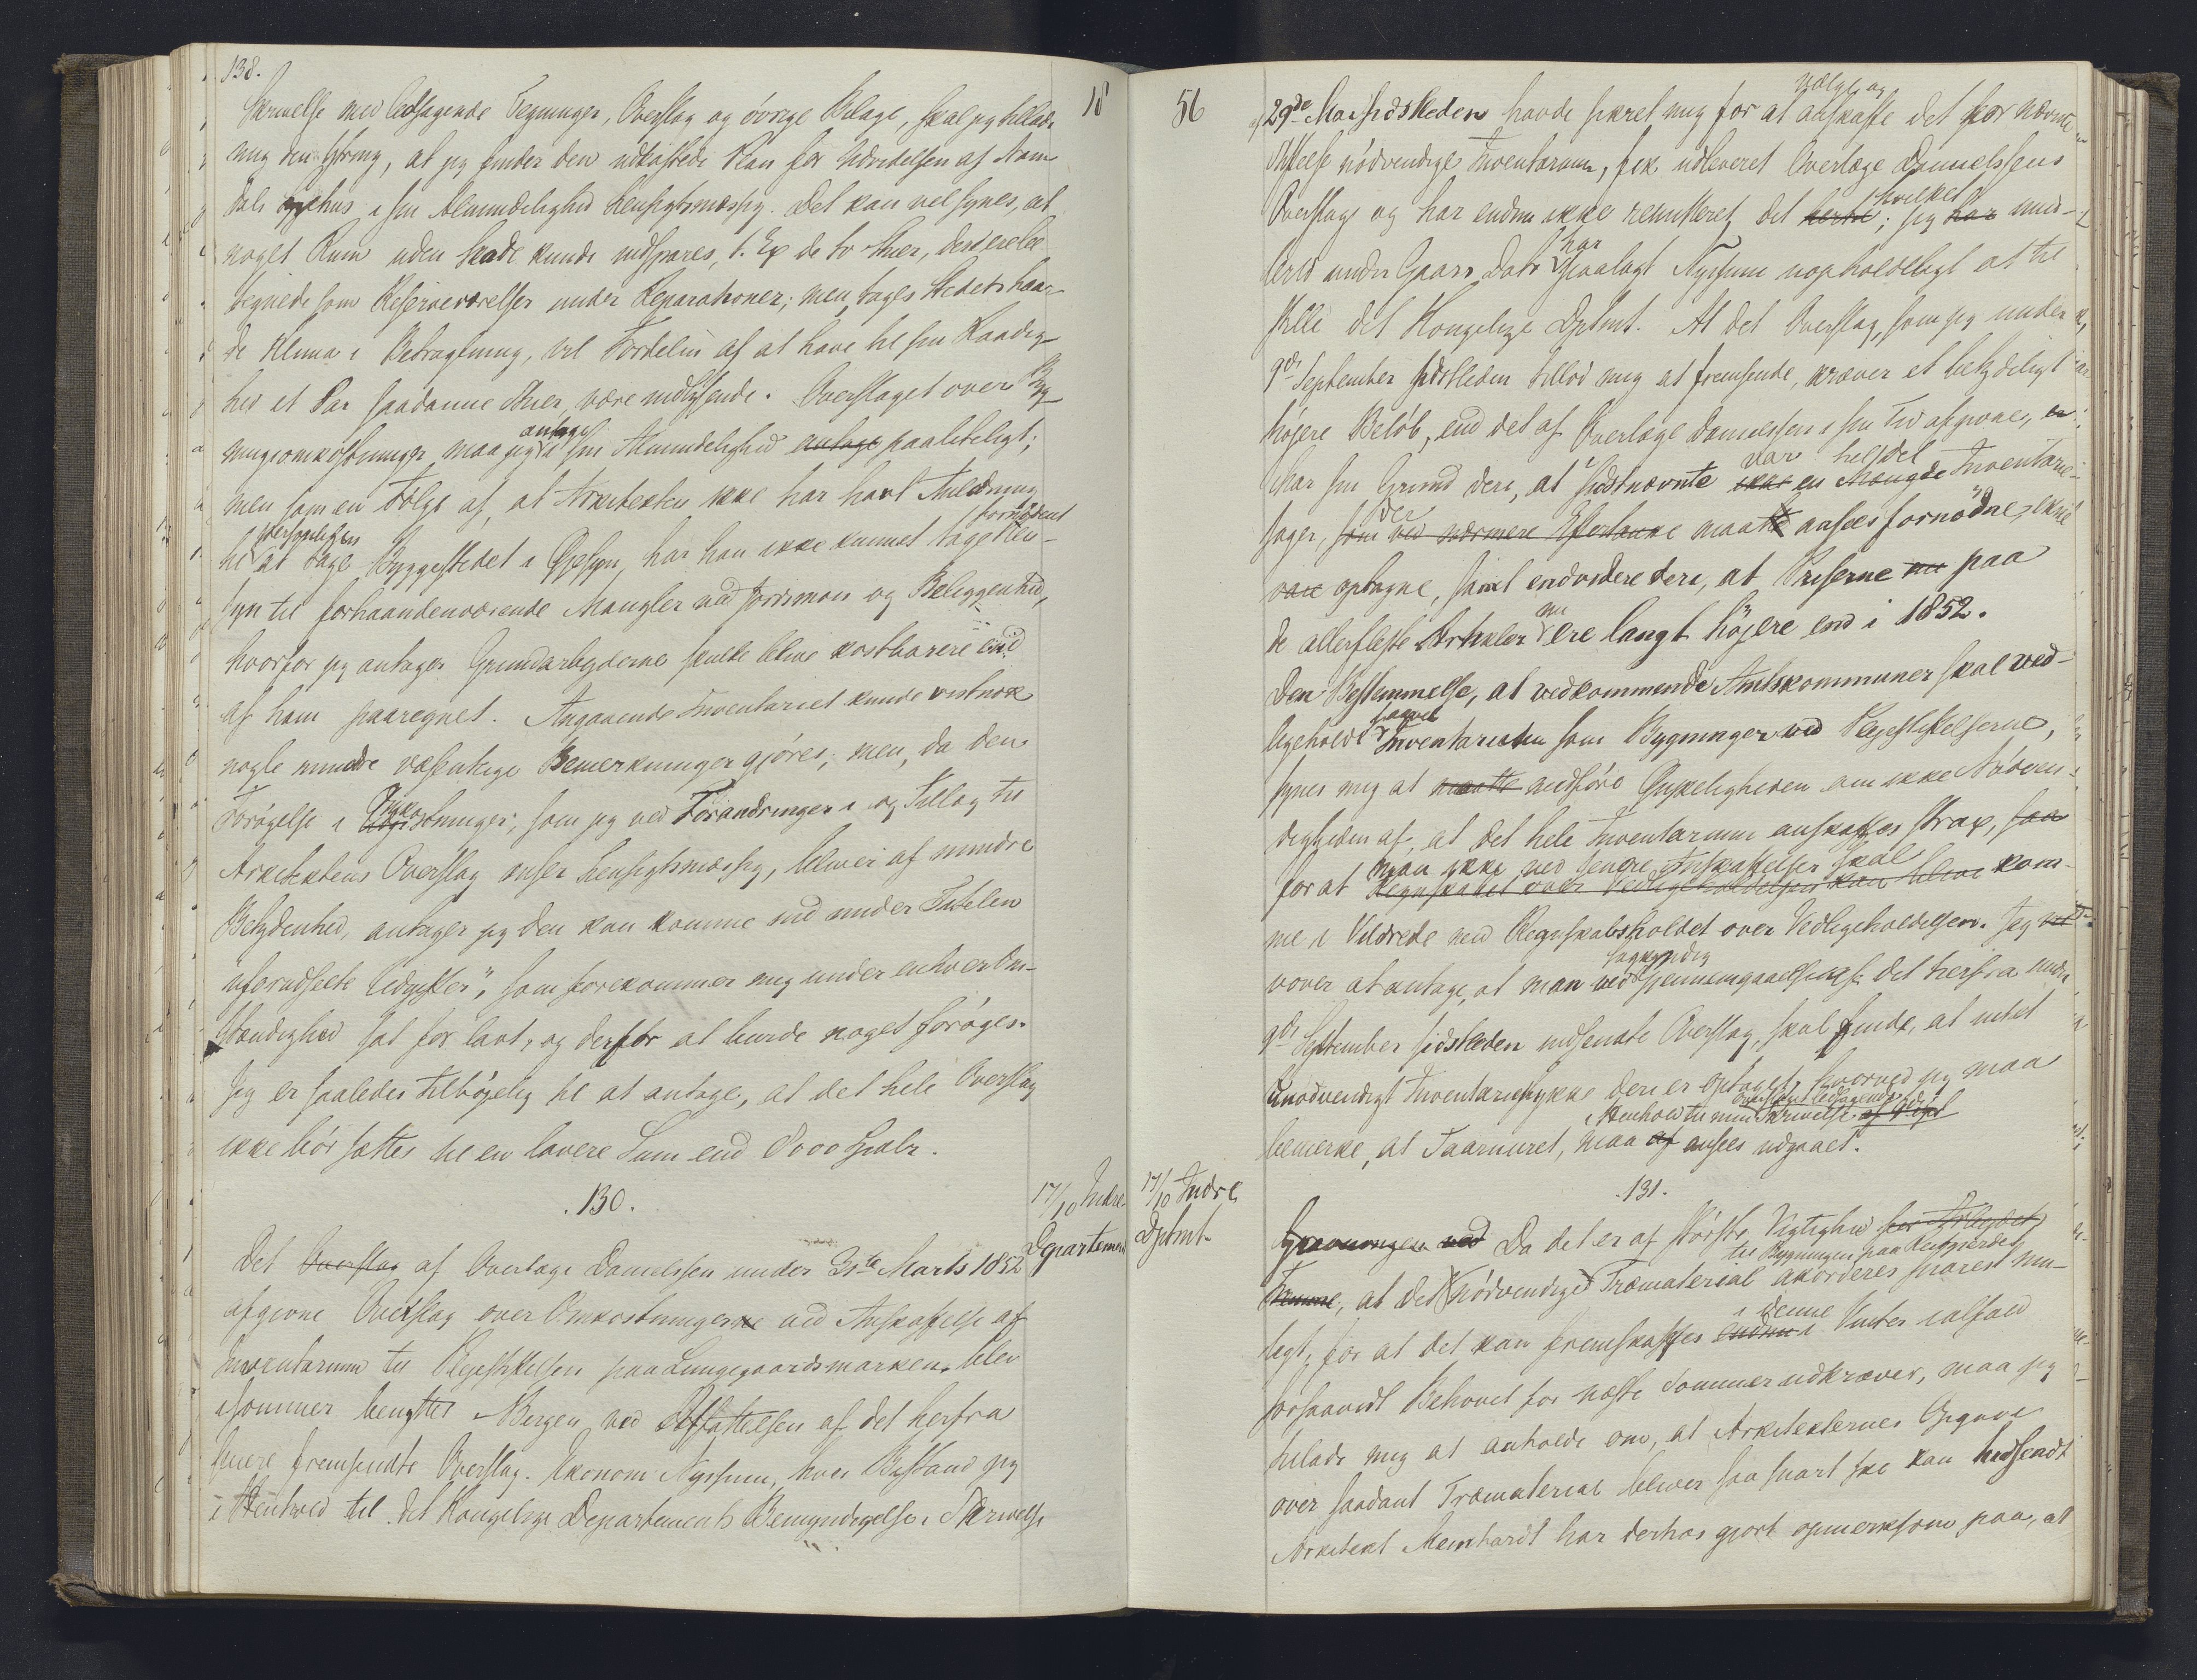 138.
Skrivelse med ledsagende Tegninger, Overslag og övrige Bilage, skal jeg tillade
mig den Ytring, at jeg finder den udkastede Plan for Udvidelsen af Nam-
dals Sygehus i sin Almindelighed hensigtsmæssig. Det kan vel synes, at
noget Rum uden Skade kunde indspares, t. Ex de to Stuer, der ere be-
tegnede som Reserveværelser under Reparationer; men, tages Stedets haar-
de Klima i Betragtning, vil Fordelen af at have til sin Raadig-
hed et Par saadanne Stuer, være indlysende. Overslaget over Byg-
ningsomkostninger maa jeg antage i sin Almindelighed antage paalideligt;
men som en Fölge af, at Arkitekten ikke har havt Anledning
til personligen at tage Byggestedet i Öjesyn, har han ikke kunnet tage fornödent Hen-
syn til forhaandenværende Mangler ved Jordsmon og Beliggenhed,
hvorfor jeg antager Grundarbejderne skulle blive kostbarere end
af ham paaregnet. Angaaende Inventariet kunde vistnok
nogle mindre væsentlige Bemerkninger gjöres; men, da den
Forögelse i Omkostninger, som jeg ved Forandringer i og Tillæg til
Arkitektens Overslag anser hensigtsmæssig, bliver af mindre
Betydenhed, antager jeg den kan komme ind under Titelen
"uforudseete Udgifter", som forekommer mig under enhver Om-
stændighed sat for lavt, og derfor at burde noget foröges.
Jeg er saaledes tilböjelig til at antage, at det hele Overslag
ikke bör sættes til en lavere Sum end 8000 Spdlr.
.130.
17/10 Indre
Departement
Det Overslag af Overlæge Danielssen under 31te Marts 1852
afgivne Overslag over Omkostningerne ved Anskaffelse af
Inventarium til Plejestiftelsen paa Lungegaardsmarken, blev
isommer benyttet i Bergen ved Affattelsen af det herfra
senere fremsendte Overslag. Ekonom Nyssum, hvis Bistand jeg
i Henhold til det Kongelige Departements Bemyndigelse i Skrivelse
18
56
af 29de Mai sidstleden havde sikret mig for at vælge og anskaffe det for nævnte
Stiftelse nödvendige Inventarium, fik udleveret Overlæge Danielssens
Overslag og har endnu ikke remitteret det hertil; hvilket jeg har imid-
lertid under Gaars Dato har paalagt Nyssum uopholdeligt at til-
stille det Kongelige Dptmt. At det Overslag, som jeg under
9de September sidstleden tillod mig at fremsende, kræver et betydeligt
höjere Belöb, end det af Overlæge Danielssen i sin Tid afgivne, er
har sin Grund deri, at i sidstnævnte ikke en Mængde var heldel Inventarie-
sager, som ved nærmere Eftertanke der maatte ansees fornödne, ikke
vare optagne, samt endvidere deri, at Priserne nu paa
de allerfleste Artikler nu ere langt höjere end i 1852.
Den Bestemmelse, at vedkommende Amtskommuner skal ved-
ligeholde saavel Inventariet som Bygninger ved Plejestiftelserne,
synes mig at maatte medföre Önskeligheden om ikke Nödven-
digheden af, at det hele Inventarium anskaffes strax, saa
for at man ikke ved senere Anskaffelser skal Regnskabet over Vedligeholdelsen kan blive kom-
me i Vildrede med Regnskabsholdet over Vedligeholdelsen. Jeg
vover at antage, at man ved sagkyndig Gjennemgaaelse af det herfra under
9de September sidstleden indsendte Overslag, skal finde, at intet
unödvendigt Inventariestykke deri er optaget, hvorved jeg maa
bemerke, at Taarnuret, i Henhold til min Overslaget ledsagende Skrivelse af 9de Spt maa af ansees udgaaet.
.131.
17/10 Indre
Dptmt.
Da det er af störste Vigtighed for Arbejdet
at det nödvendige Træmaterial til Bygningen paa Reitgjerdet akorderes snarest mu-
ligt, for at det kan fremskaffes endnu i i denne Vinter ialfald
forsaavidt Behovet for næste Sommer udkræver, maa jeg
tillade mig at anholde om, at Arkitekternes Opgave
over saadant Træmaterial bliver saa snart ske kan hidsendt
Arkitekt Meinhardt har derhos gjort opmerksom paa, at